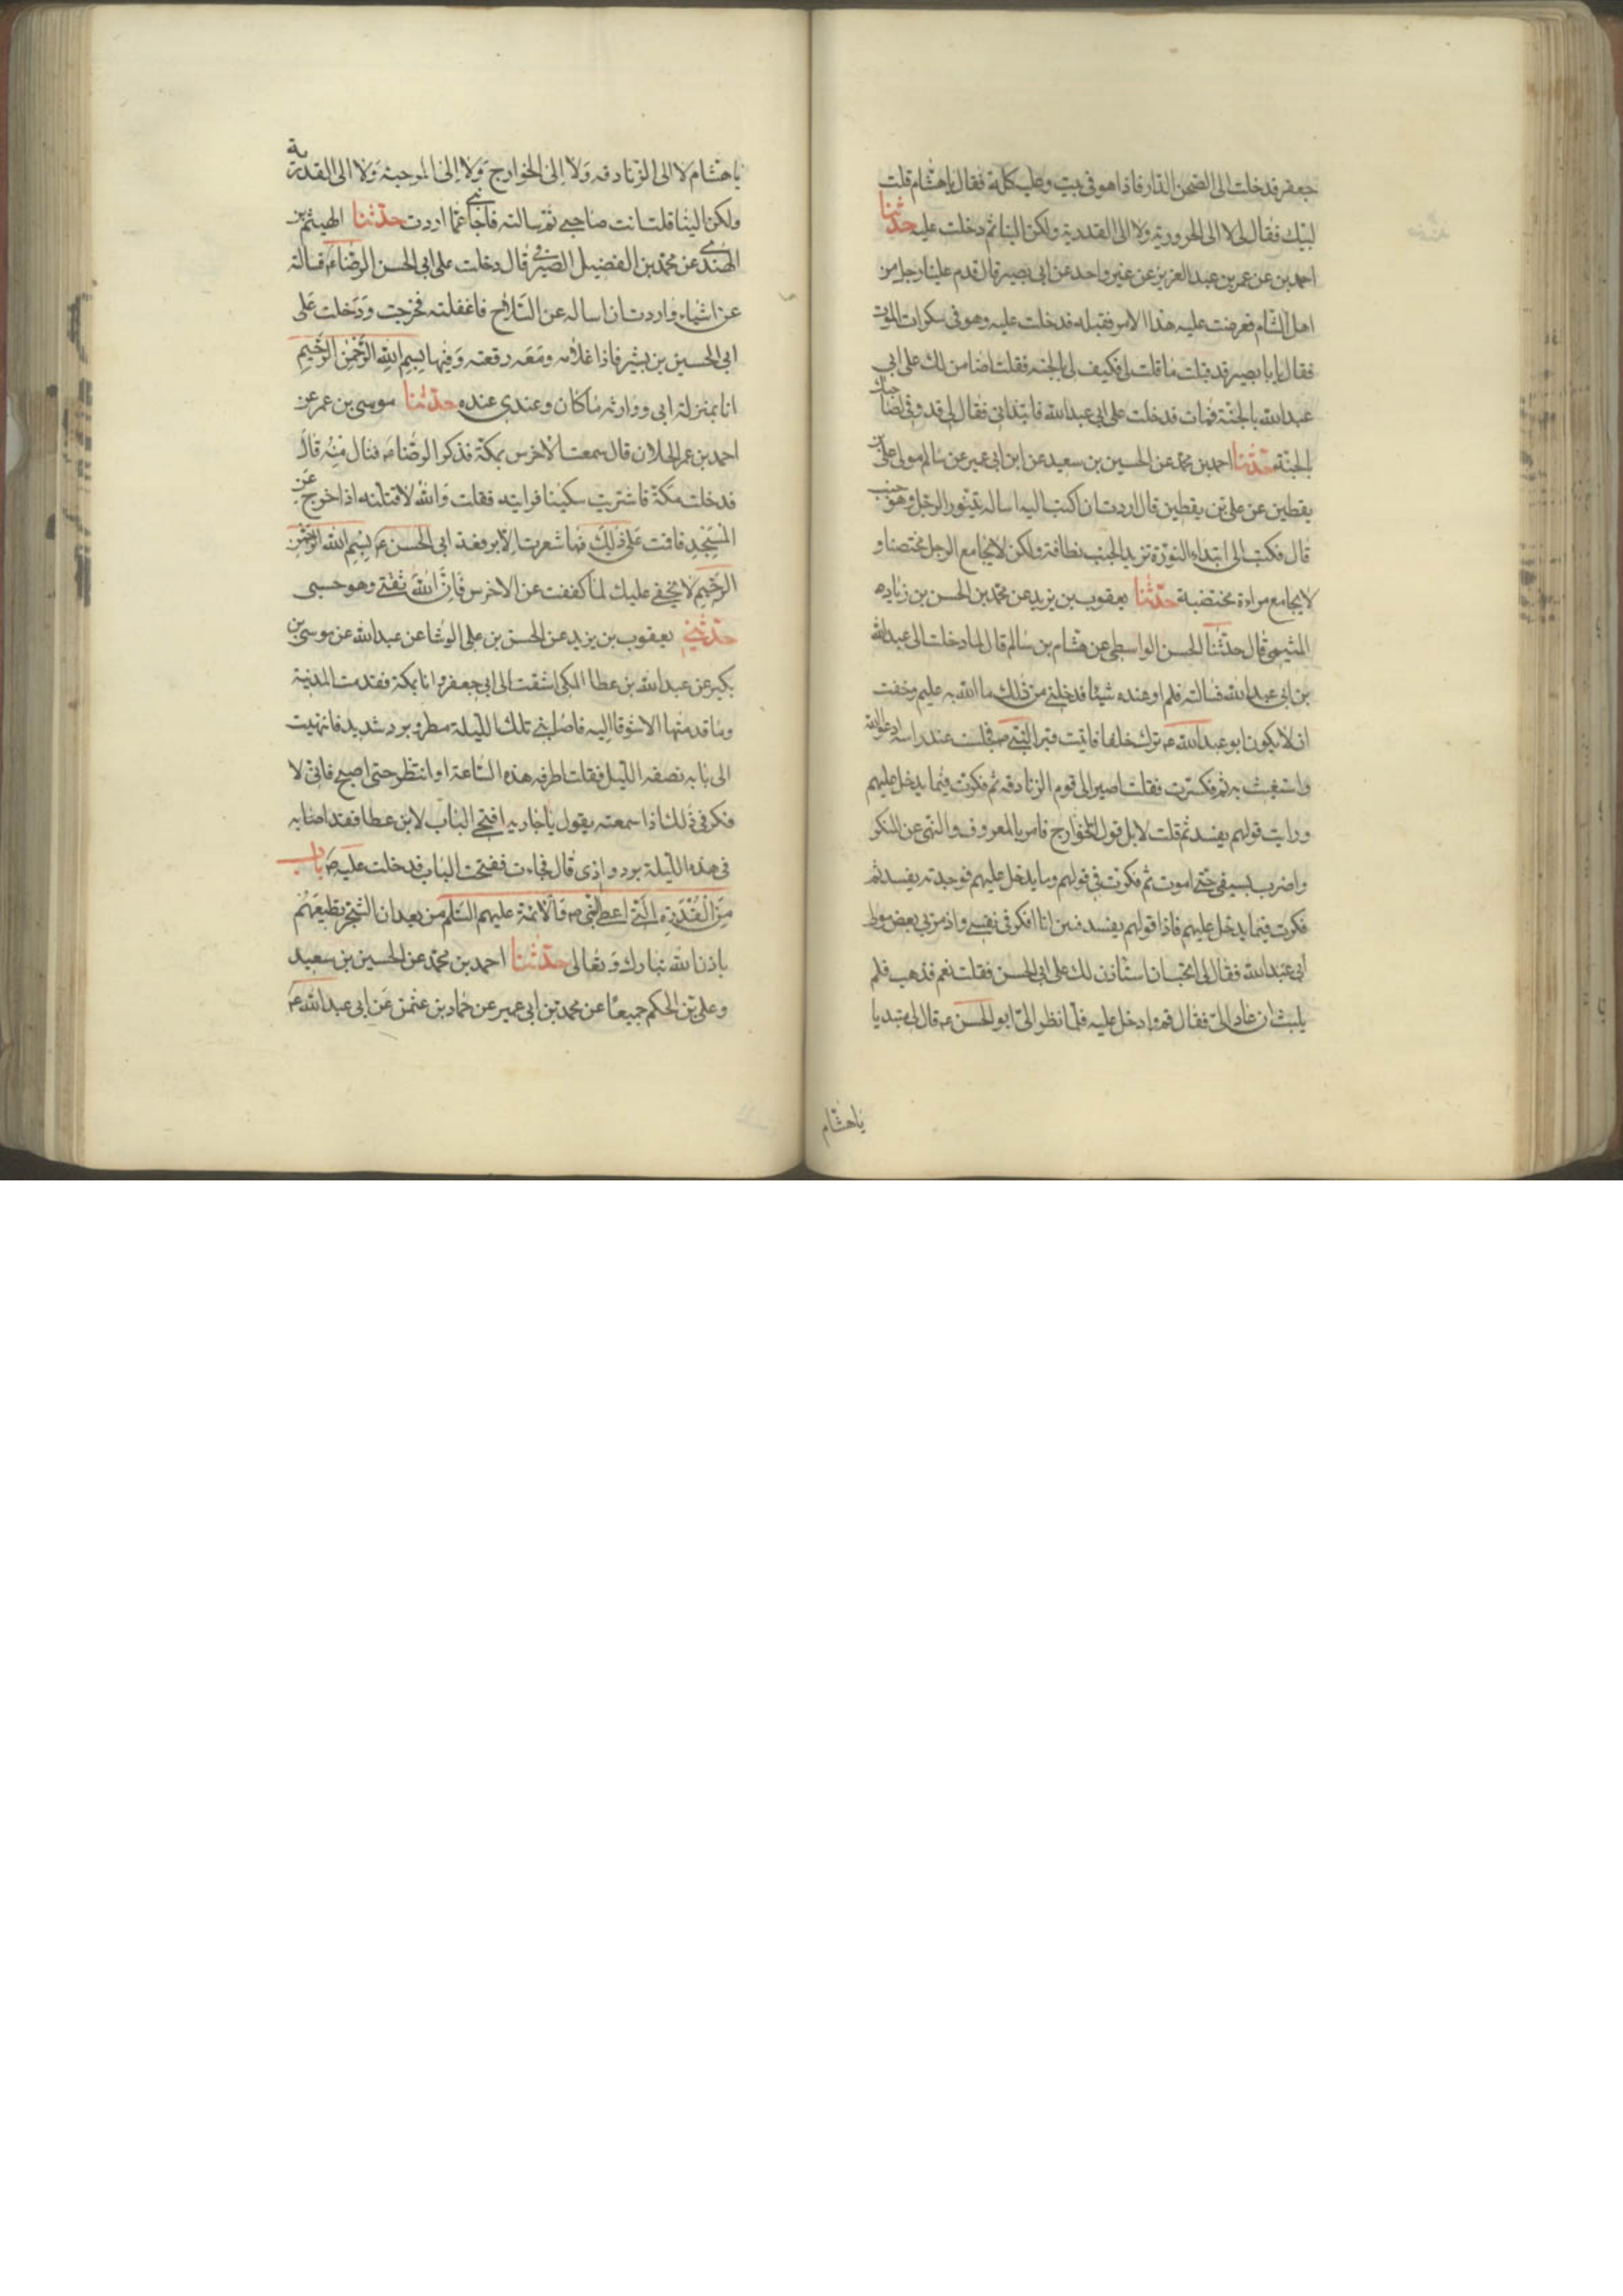 جعفر فدخلت الى الصحن الدار فاذا هو فى بيت وعليه كلة فقال يا هشام قلت
لبيك فقال لى لا الى الحرورية ولا الى القدرية ولكن الينا ثم دخلت عليه حدثنا
احمد بن عن عمر بن عبد العزيز عن غير واحد عن ابى بصير قال قدم علينا رجل من
اهل الشام فعرضت عليه هذا الامر فقبله فدخلت عليه وهو فى سكرات الموت
فقال يا ابا بصير قد قبلت ما قلت لى فكيف لى بالجنة فقلت انا ضامن لك على ابى
عبد الله بالجنة فمات فدخلت على ابى عبد الله فابتدانى فقال لى قد وفى لصاحبك
بالجنة حدثنا احمد بن محمد عن الحسين بن سعيد عن ابن ابى عمير عن سالم مولى على بن
يقطين عن على بن يقطين قال اردت ان اكتب اليه اساله يتنور الرجل وهو جنب
قال فكتب الى ابتداء النورة تزيد الجنب نظافة ولكن لا يجامع الرجل مختضبا و
لا يجامع مراءة مختضبة حدثنا يعقوب بن يزيد عن محمد بن الحسن بن زياده
الميثمى قال حدثنا الحسن الواسطى عن هشام بن سالم قال لما دخلت الى عبد الله
بن ابى عبد الله فسالته فلم ار عنده شيئا فدخلنى من ذلك ما الله به عليم وخفت
ان لا يكون ابو عبد الله ع ترك خلفا فاتيت قبر النبى ص فجلست عند راسه ادعو الله
واستغيث به ثم فكرت فقلت اصير الى قوم الزنادقه ثم فكرت فيما يدخل عليهم
ورايت قولهم يفسد ثم قلت لا بل قول الخوارج فامر بالمعروف والنهى عن المنكر
واضرب بسيفى حتى اموت ثم فكرت فى قولهم وما يدخل عليهم فوجدته يفسد ثم
فكرت فيما يدخل عليهم فاذا قولهم يفسد فبين انا افكر فى نفسى واذ مر بى بعض موالى
ابى عبد الله فقال لى اتحب ان استاذن لك على ابى الحسن فقلت نعم فذهب فلم
يلبث ان عاد الى فقال قم وادخل عليه فلما نظر الى ابو الحسن ع قال لى مبتديا
يا هشام
يا هشام لا الى الزنادقه ولا الى الخوارج ولا الى المرجئة ولا الى القدرية
ولكن الينا قلت انت صاحبى ثم سالته فاجابنى عما اردت حدثنا الهيثم بن
النهدى عن محمد بن الفضيل الصيرفى قال دخلت على ابى الحسن الرضا ع فسالته
عن اشياء واردت ان اساله عن السلاح فاغفلته فخرجت ودخلت على
ابى الحسين بن بشير فاذا غلامه ومعه رقعته وفيها بسم الله الرحمن الرحيم
انا بمنزلة ابى ووارثه ما كان وعندى عنده حدثنا موسى بن عمر عن
احمد بن عمر الحلان قال سمعت الاخرس بمكة فذكر الرضا ع فنال منه قال
فدخلت مكة فاشتريت سكينا فرايته فقلت والله لاقتلنه اذا خرج عن
المسجد فاقمت على ذلك فما شعرت الا برقعة ابى الحسن ع بسم الله الرحمن
الرحيم لا يخفى عليك لما كففت عن الاخرس فان الله ثقتى وهو حسبى
حدثنى يعقوب بن يزيد عن الحسن بن على الوشا عن عبد الله عن موسى بن
بكير عن عبد الله بن عطا المكى اشتقت الى ابى جعفر ع وانا بمكة فقدمت المدينة
وما قدمتها الا شوقا اليه فاصابنى تلك الليلة مطر وبرد شديد فانتهيت
الى بابه نصف الليل فقلت اطرقه هذه الساعة او انتظر حتى اصبح فانى لا
فكر فى ذلك اذا سمعته يقول يا جاريه افتحى الباب لابن عطا فقد اصابه
فى هذه الليلة برد واذى قال فجاءت ففتحت الباب فدخلت عليه ص باب
من القدرة التى اعطى النبى ص والائمة عليهم السلم من بعد ان الشجر تطيعهم
باذن الله تبارك وتعالى حدثنا احمد بن محمد عن الحسين بن سعيد
وعلى بن الحكم جميعا عن محمد بن ابى عمير عن حماد بن عثمن عن ابى عبد الله ع